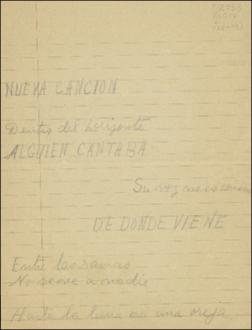 NUEVA CANCION
Dentro del horizonte
ALGUIEN CANTABA
Su voz no es conocida
DE DONDE VIENE
Entre las ramas
No se ve a nadie
Hasta la luna era una oreja